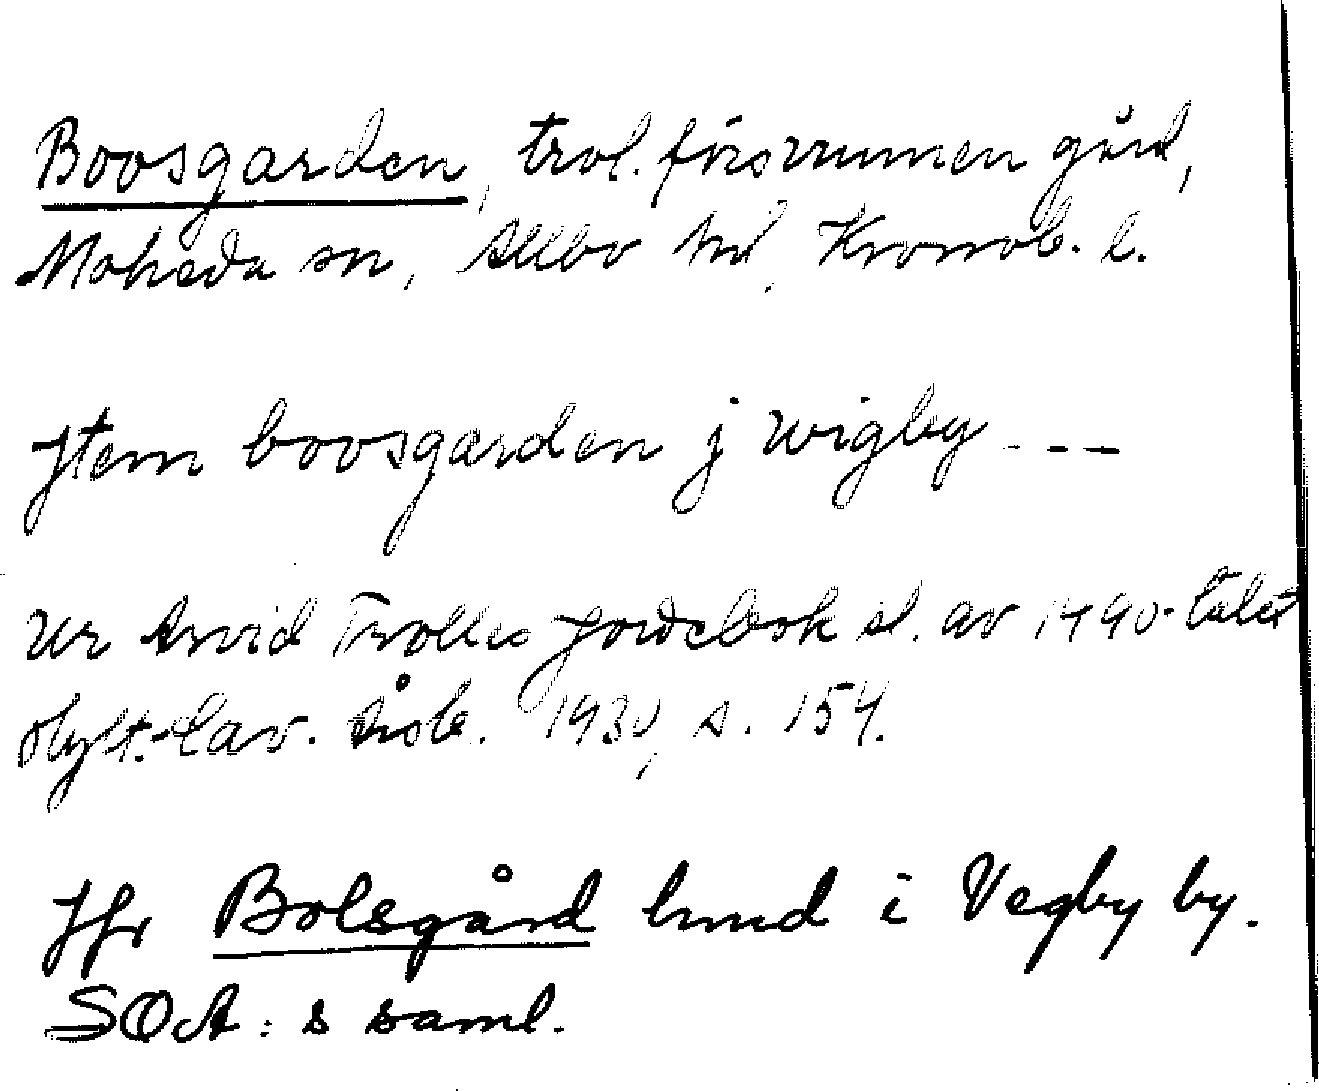 Boosgarden, trol. försvunnen gård,
Moheda sn, Allbo hd, Kronob. l.
Jtem boosgarden j wigby ---
Ur Arvid Trolles Jordebok sl. av 1490-talet
Hylt.-Cav. Årsb. 1930, s. 154.
Jfr Bolsgård hmd i Vegby by.
SOA:s saml.